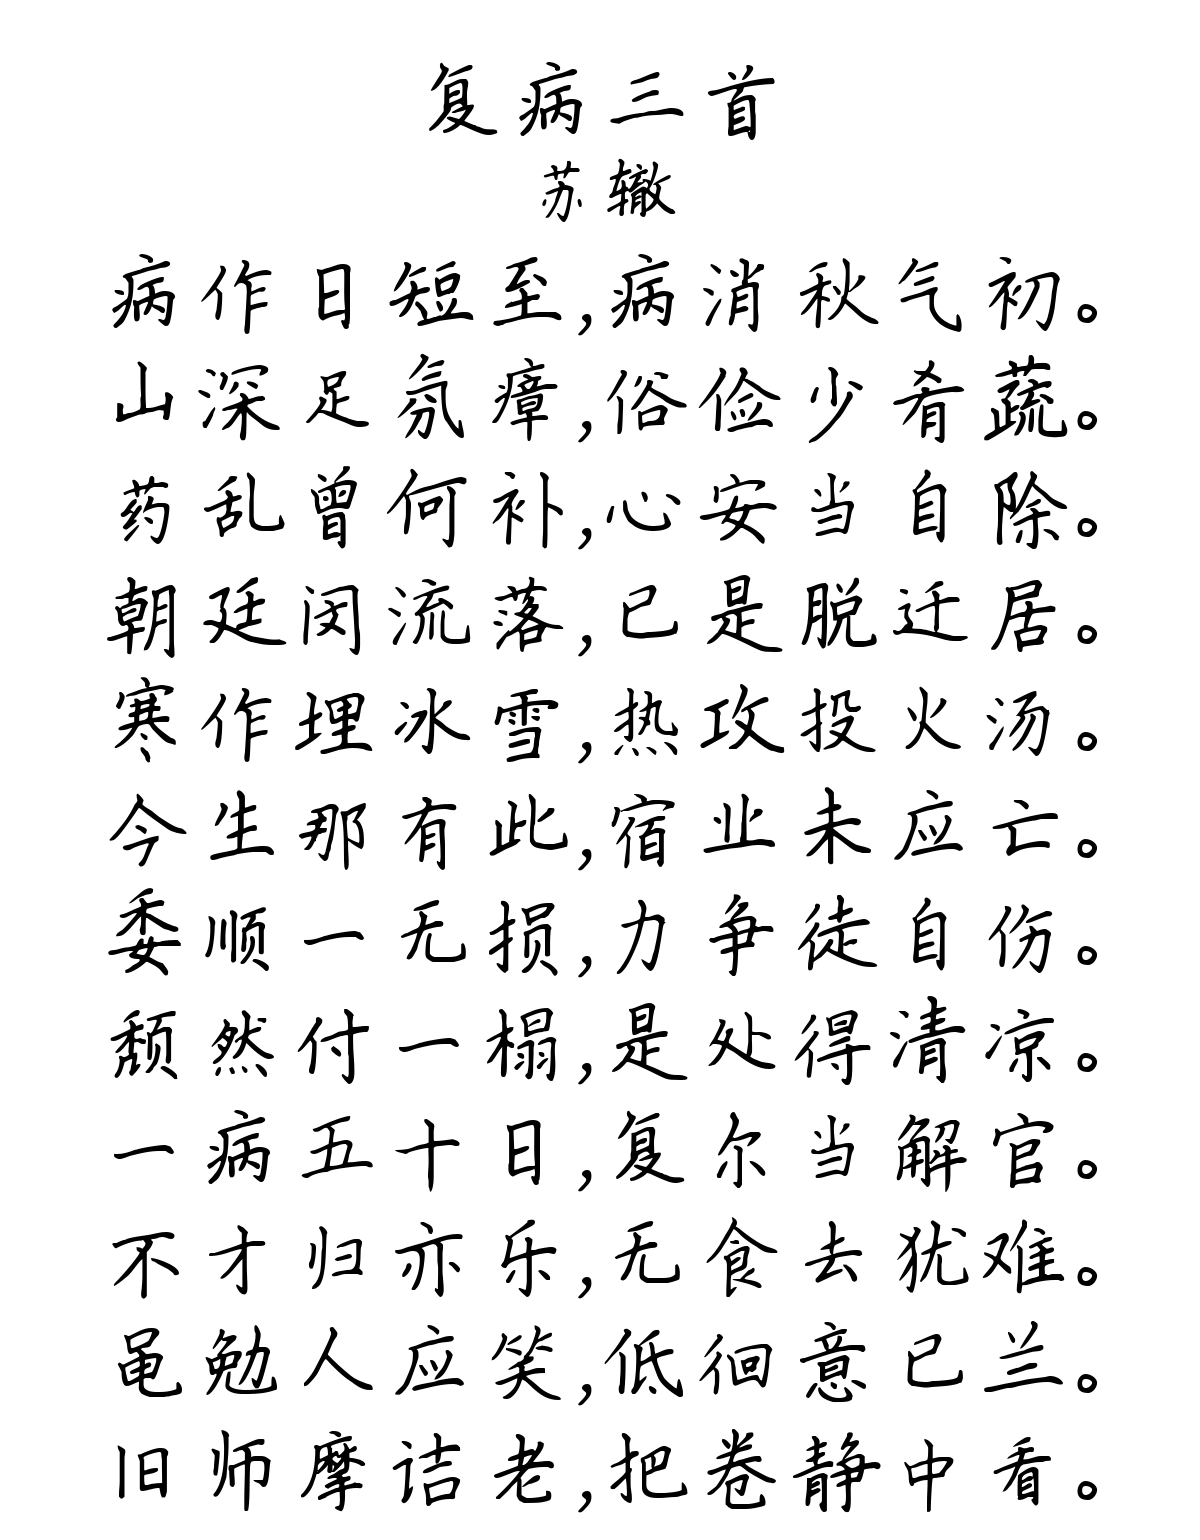 复病三首
苏辙
病作日短至,病消秋气初。
山深足氛瘴,俗俭少肴蔬。
药乱曾何补,心安当自除。
朝廷闵流落,已是脱迁居。
寒作埋冰雪,热攻投火汤。
今生那有此,宿业未应亡。
委顺一无损,力争徒自伤。
颓然付一榻,是处得清凉。
一病五十日,复尔当解官。
不才归亦乐,无食去犹难。
黾勉人应笑,低徊意已兰。
旧师摩诘老,把卷静中看。